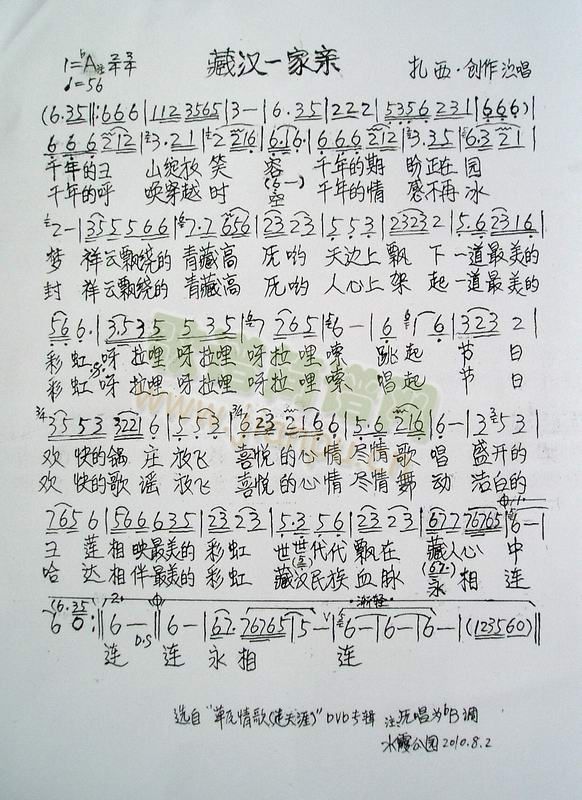 藏汉一家亲
1=♭A 2/4 3/4
♩=56
扎西·创作演唱
(6.35|:666|112 3565|3-|6.35|222|5356 231|666)|
666 212|3.21|2 216|616|666 212|3.35|6.3 21|
千年的王 山绽放 笑 容 千年的期 盼正在 园
千年的呼 唤穿越 时 空 千年的情 感不再 冰
2-|355566|7.7 656|23 23|553|2323 2|5.6 2316|
梦 祥云飘绕的 青藏高 原哟 天边上 飘 下 一道最美的
封 祥云飘绕的 青藏高 原哟 人心上 架 起 一道最美的
56 6.|3.535 5 35|7 765|6-|6 6|323 2|
彩虹 呀拉哩 呀拉哩 呀拉哩嗦 跳起 节日
彩虹 呀拉哩 呀拉哩 呀拉哩嗦 唱起 节日
3553 322|6|5 3|623 2166|5.6 216|6-|3 353|
欢快的锅庄 放飞 喜悦的心情 尽情歌唱 盛开的
欢快的歌谣 放飞 喜悦的心情 尽情舞动 洁白的
765 6|566635|23 23|5.3 56|23 23|677 76765|6-|
王莲 相映最美的 彩虹 世世代代 飘在 藏人心 中
哈达 相伴最美的 彩虹 藏汉民族 血脉 永相 连
(6.35
6 0:|6-|6-|67. 76765|5-|6-|6-|6-|(123560)||
D.S 渐轻
连 连 永 相 连
选自“草原情歌(走天涯)”DVD专辑 注:原唱为♭B调
水霞公园2010.8.2
www.jianpu.cn